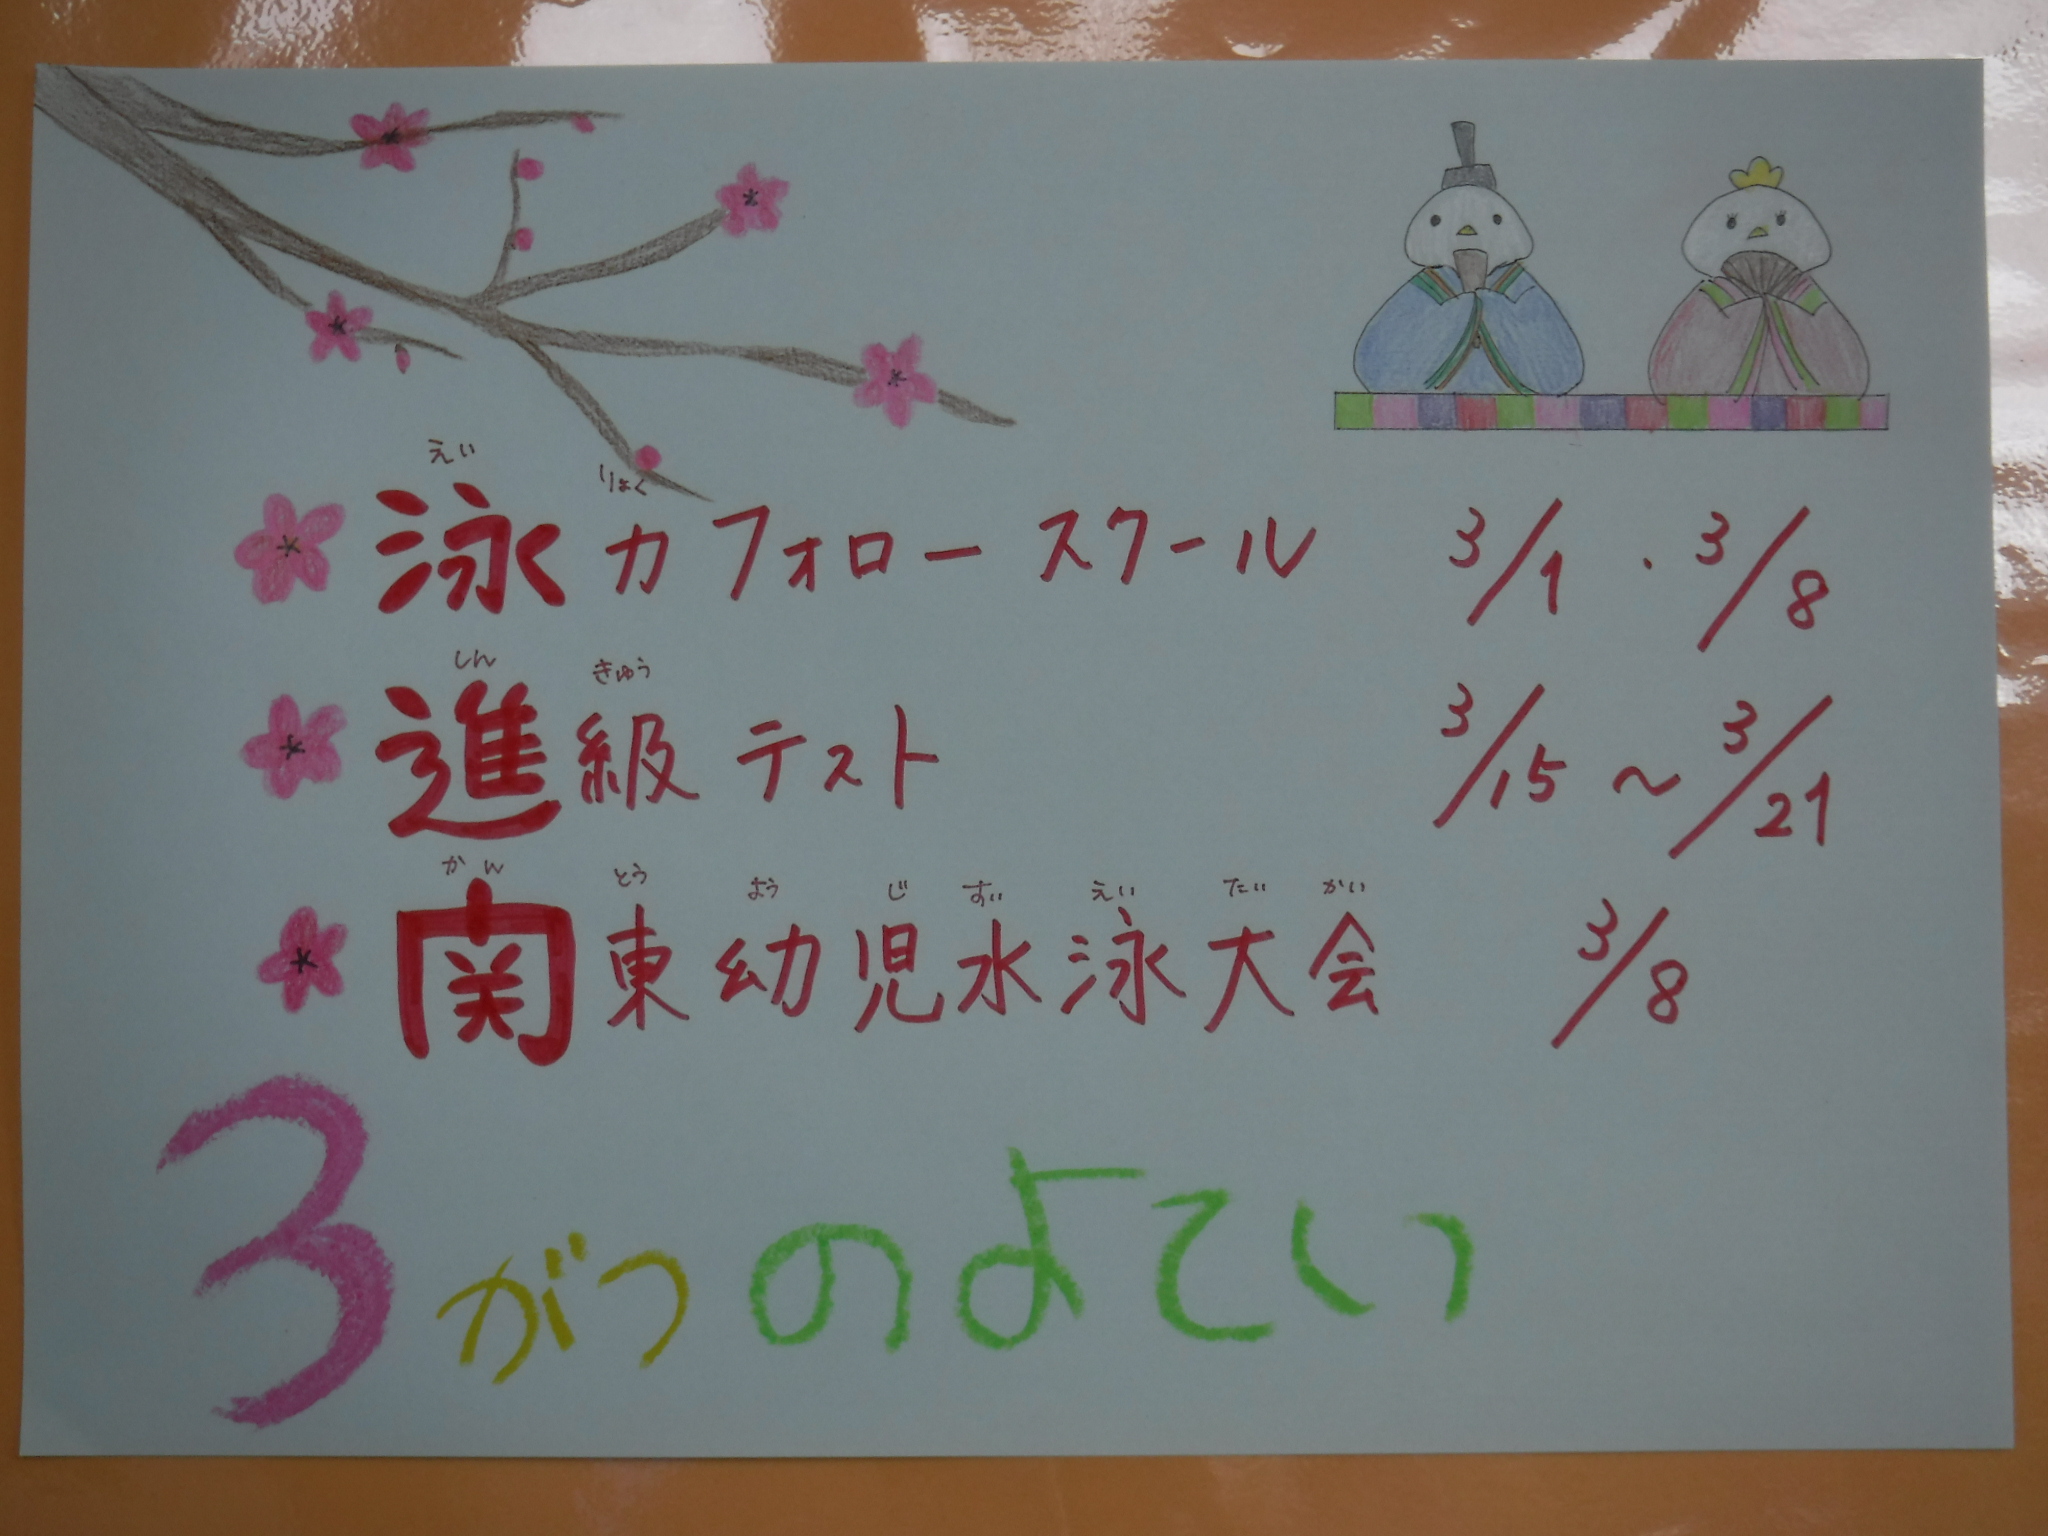 えい りょく
泳力フォロースクール 3/1 ・ 3/8
しん きゅう
進級テスト 3/15 ～ 3/21
かん とう よう じ すい えい たい かい
関東幼児水泳大会 3/8
3がつのよてい